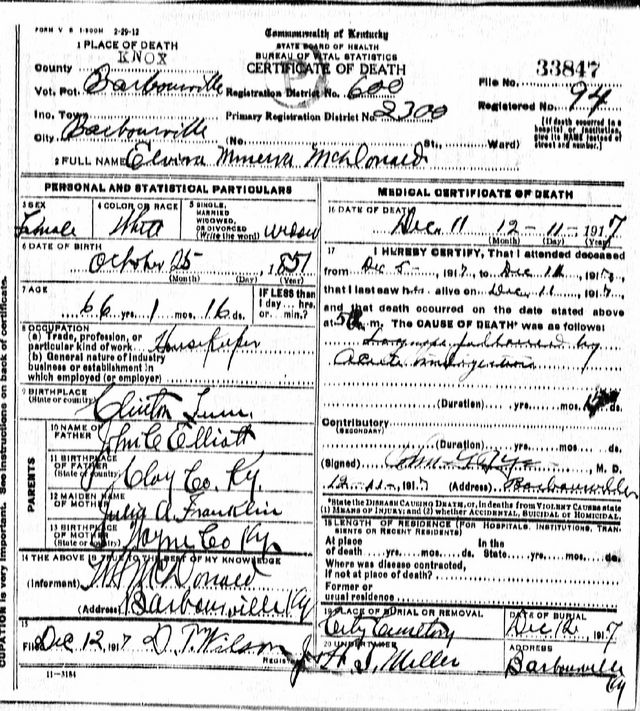 FORM V S 1-500M 2-29-12
Commonwealth of Kentucky
STATE BOARD OF HEALTH
BUREAU OF VITAL STATISTICS
CERTIFICATE OF DEATH
1 PLACE OF DEATH
KNOX
County
Vot. Pct. Barbourville Registration District No. 600
File No. 33847
Inc. Town Primary Registration District No. 2300
Registered No. 94
City Barbourville (No. St., Ward)
[If death occurred in a hospital or institution, give its NAME instead of street and number.]
2 FULL NAME Elvira Minerva McDonald
PERSONAL AND STATISTICAL PARTICULARS
3 SEX Female
4 COLOR OR RACE White
5 SINGLE, MARRIED WIDOWED, OR DIVORCED (Write the word) Widow
6 DATE OF BIRTH
October 25, 1851
(Month) (Day) (Year)
7 AGE
66 yrs. 1 mos. 16 ds.
IF LESS than 1 day... hrs. or... min.?
8 OCCUPATION
(a) Trade, profession, or particular kind of work Housekeeper
(b) General nature of industry business or establishment in which employed (or employer)
9 BIRTHPLACE (State or country) Clinton Tenn.
PARENTS
10 NAME OF FATHER John C Elliott
11 BIRTHPLACE OF FATHER (State or country) Clay Co. Ky.
12 MAIDEN NAME OF MOTHER Julia A. Franklin
13 BIRTHPLACE OF MOTHER (State or country) Wayne Co Ky
14 THE ABOVE IS TRUE TO THE BEST OF MY KNOWLEDGE
(Informant) McDonald
(Address) Barbourville Ky
15
Filed Dec 12, 1917 D. T. Wilson
REGISTRAR
11-3184
MEDICAL CERTIFICATE OF DEATH
16 DATE OF DEATH Dec. 11 12-11-1917
(Month) (Day) (Year)
17 I HEREBY CERTIFY, That I attended deceased
from Dec 5- 1917, to Dec 11, 1917,
that I last saw her alive on Dec 11, 1917,
and that death occurred on the date stated above
at m. The CAUSE OF DEATH* was as follows:
followed by
acute indigestion
(Duration) yrs. mos. ds.
Contributory
(SECONDARY)
(Duration) yrs. mos. ds.
(Signed) John M. D.
12-11-, 1917 (Address) Barbourville
*State the DISEASE CAUSING DEATH, or, in deaths from VIOLENT CAUSES state (1) MEANS OF INJURY; and (2) whether ACCIDENTAL SUICIDAL or HOMICIDAL.
18 LENGTH OF RESIDENCE (FOR HOSPITALS, INSTITUTIONS, TRANSIENTS OR RECENT RESIDENTS)
At place of death yrs. mos. ds. In the State yrs. mos. ds.
Where was disease contracted, If not at place of death?
Former or usual residence
19 PLACE OF BURIAL OR REMOVAL City Cemetery
DATE OF BURIAL Dec 12, 1917
20 UNDERTAKER Miller
ADDRESS Barbourville Ky
CUPATION is very important. See instructions on back of certificate.